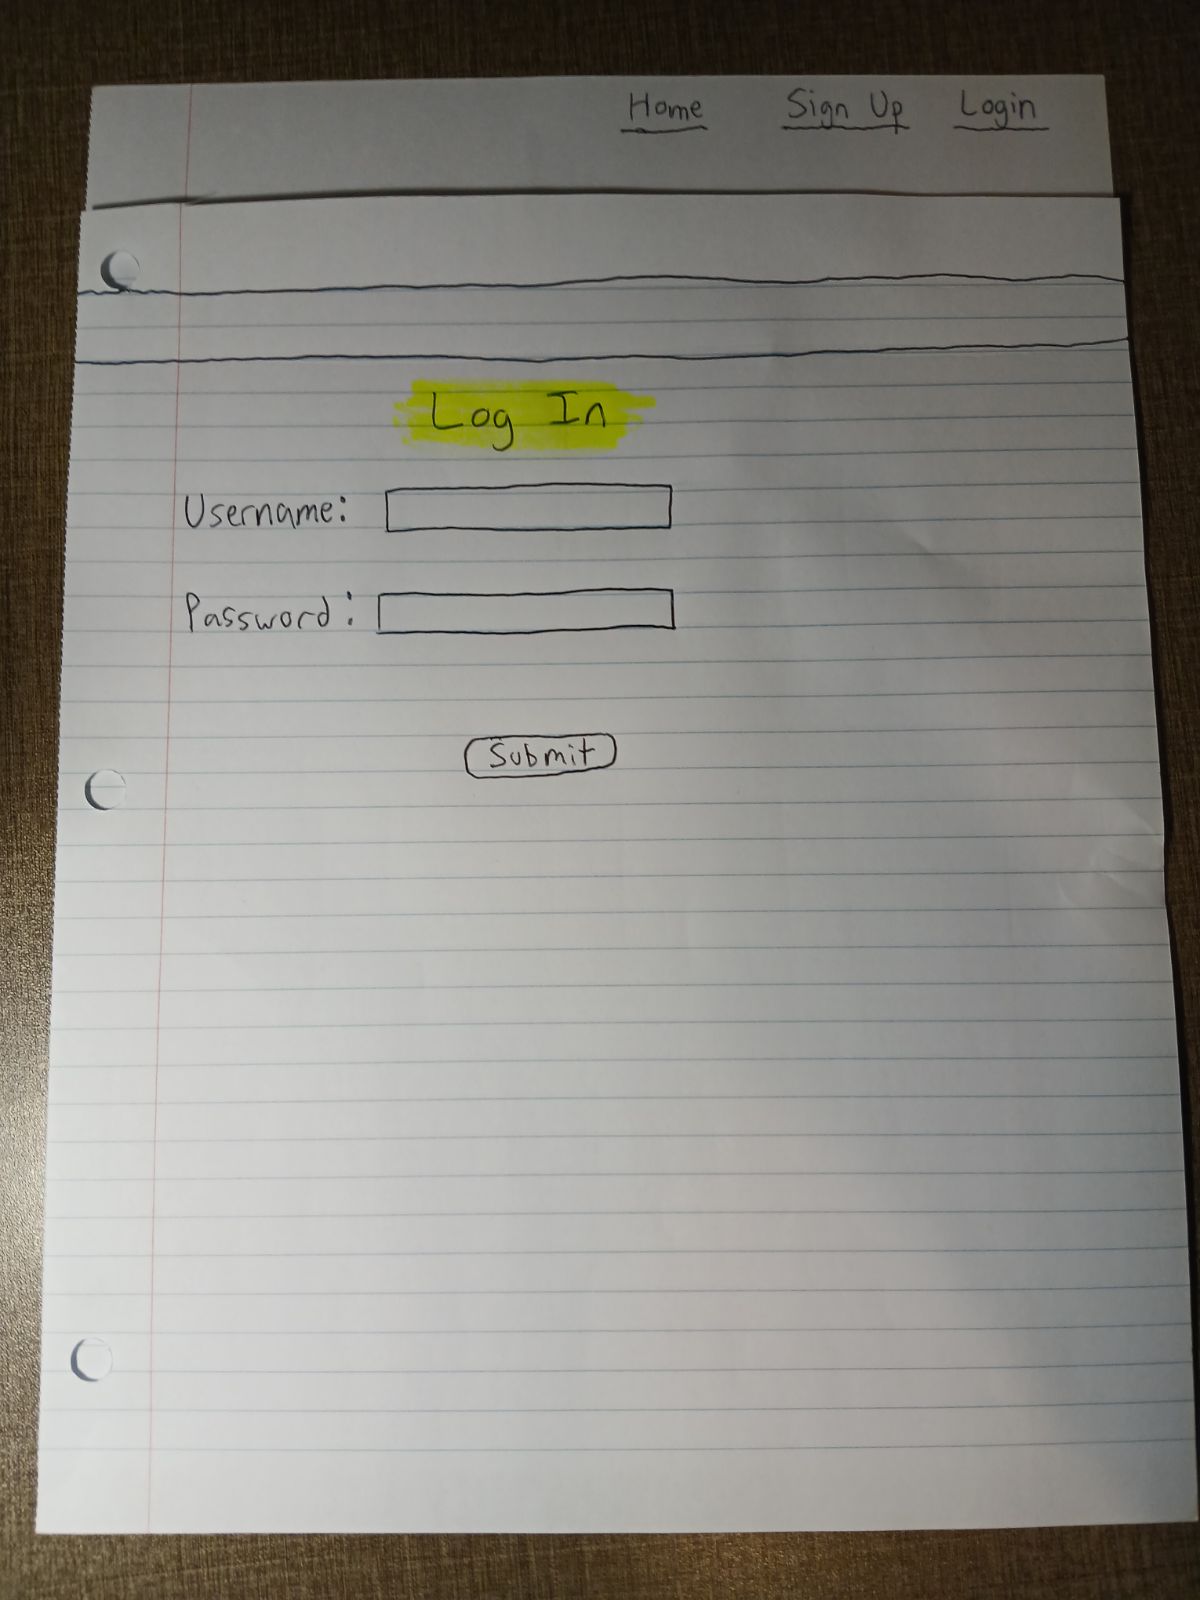 Home Sign Up Login
Log In
Username:
Password:
Submit